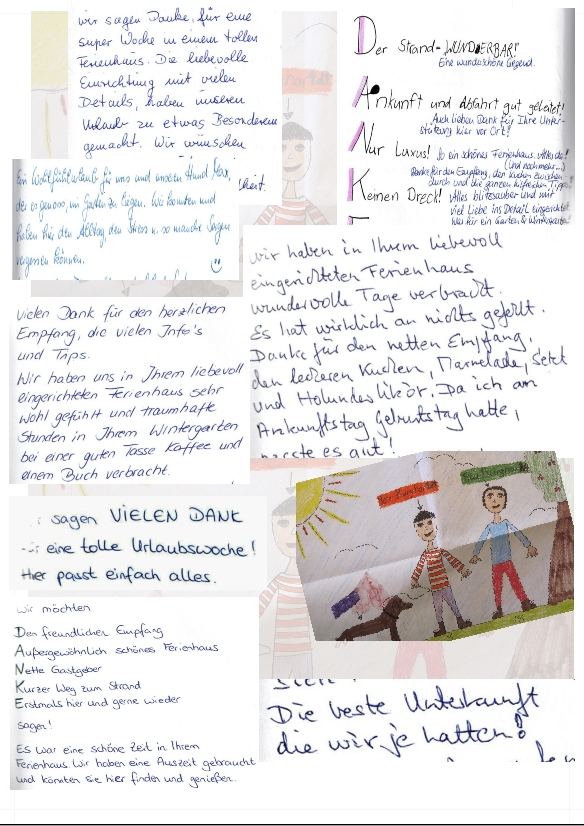 wir sagen Danke, für eine
super Woche in einem tollen
Ferienhaus. Die liebevolle
Einrichtung mit vielen
Details, haben unseren
Urlaub zu etwas Besonderem
gemacht. Wir wünschen
Der Strand - WUNDERBAR!
Eine wunderschöne Gegend.
Ankunft und Abfahrt gut geleitet!
Auch lieben Dank für Ihre Unter-
stützung hier vor Ort!
Nur Luxus! So ein schönes Ferienhaus. Alles da!
(Und noch mehr...)
Danke für den Empfang, den Kuchen zwischen-
durch und die ganzen hilfreichen Tipps
Keinen Dreck! Alles blitzsauber und mit
viel Liebe ins Detail eingerichtet
Was für ein Garten & Wintergarten
Ein Wohlfühlurlaub für uns und unseren Hund
der es genoss, im Garten zu liegen. Wir konnten und
haben hier den Alltag, den Stress u. so manche Sorgen
vergessen können.
wir haben in Ihrem liebevoll
eingerichteten Ferienhaus
wundervolle Tage verbracht.
Es hat wirklich an nichts gefehlt.
Danke für den netten Empfang,
den leckeren Kuchen, Marmelade, Sekt
und Holunderlikör. Da ich am
Ankunftstag Geburtstag hatte,
passte es gut!
vielen Dank für den herzlichen
Empfang, die vielen Info's
und Tips.
Wir haben uns in Ihrem liebevoll
eingerichteten Ferienhaus sehr
wohl gefühlt und traumhafte
Stunden in Ihrem Wintergarten
bei einer guten Tasse Kaffee und
einem Buch verbracht.
sagen VIELEN DANK
eine tolle Urlaubswoche!
Hier passt einfach alles.
wir möchten
Den freundlichen Empfang
Außergewöhnlich schönes Ferienhaus
Nette Gastgeber
Kurzer Weg zum Strand
Erstmals hier und gerne wieder
sagen!
Es war eine schöne Zeit in Ihrem
Ferienhaus. Wir haben eine Auszeit gebraucht
und konnten sie hier finden und genießen.
Die beste Unterkunft
die wir je hatten!